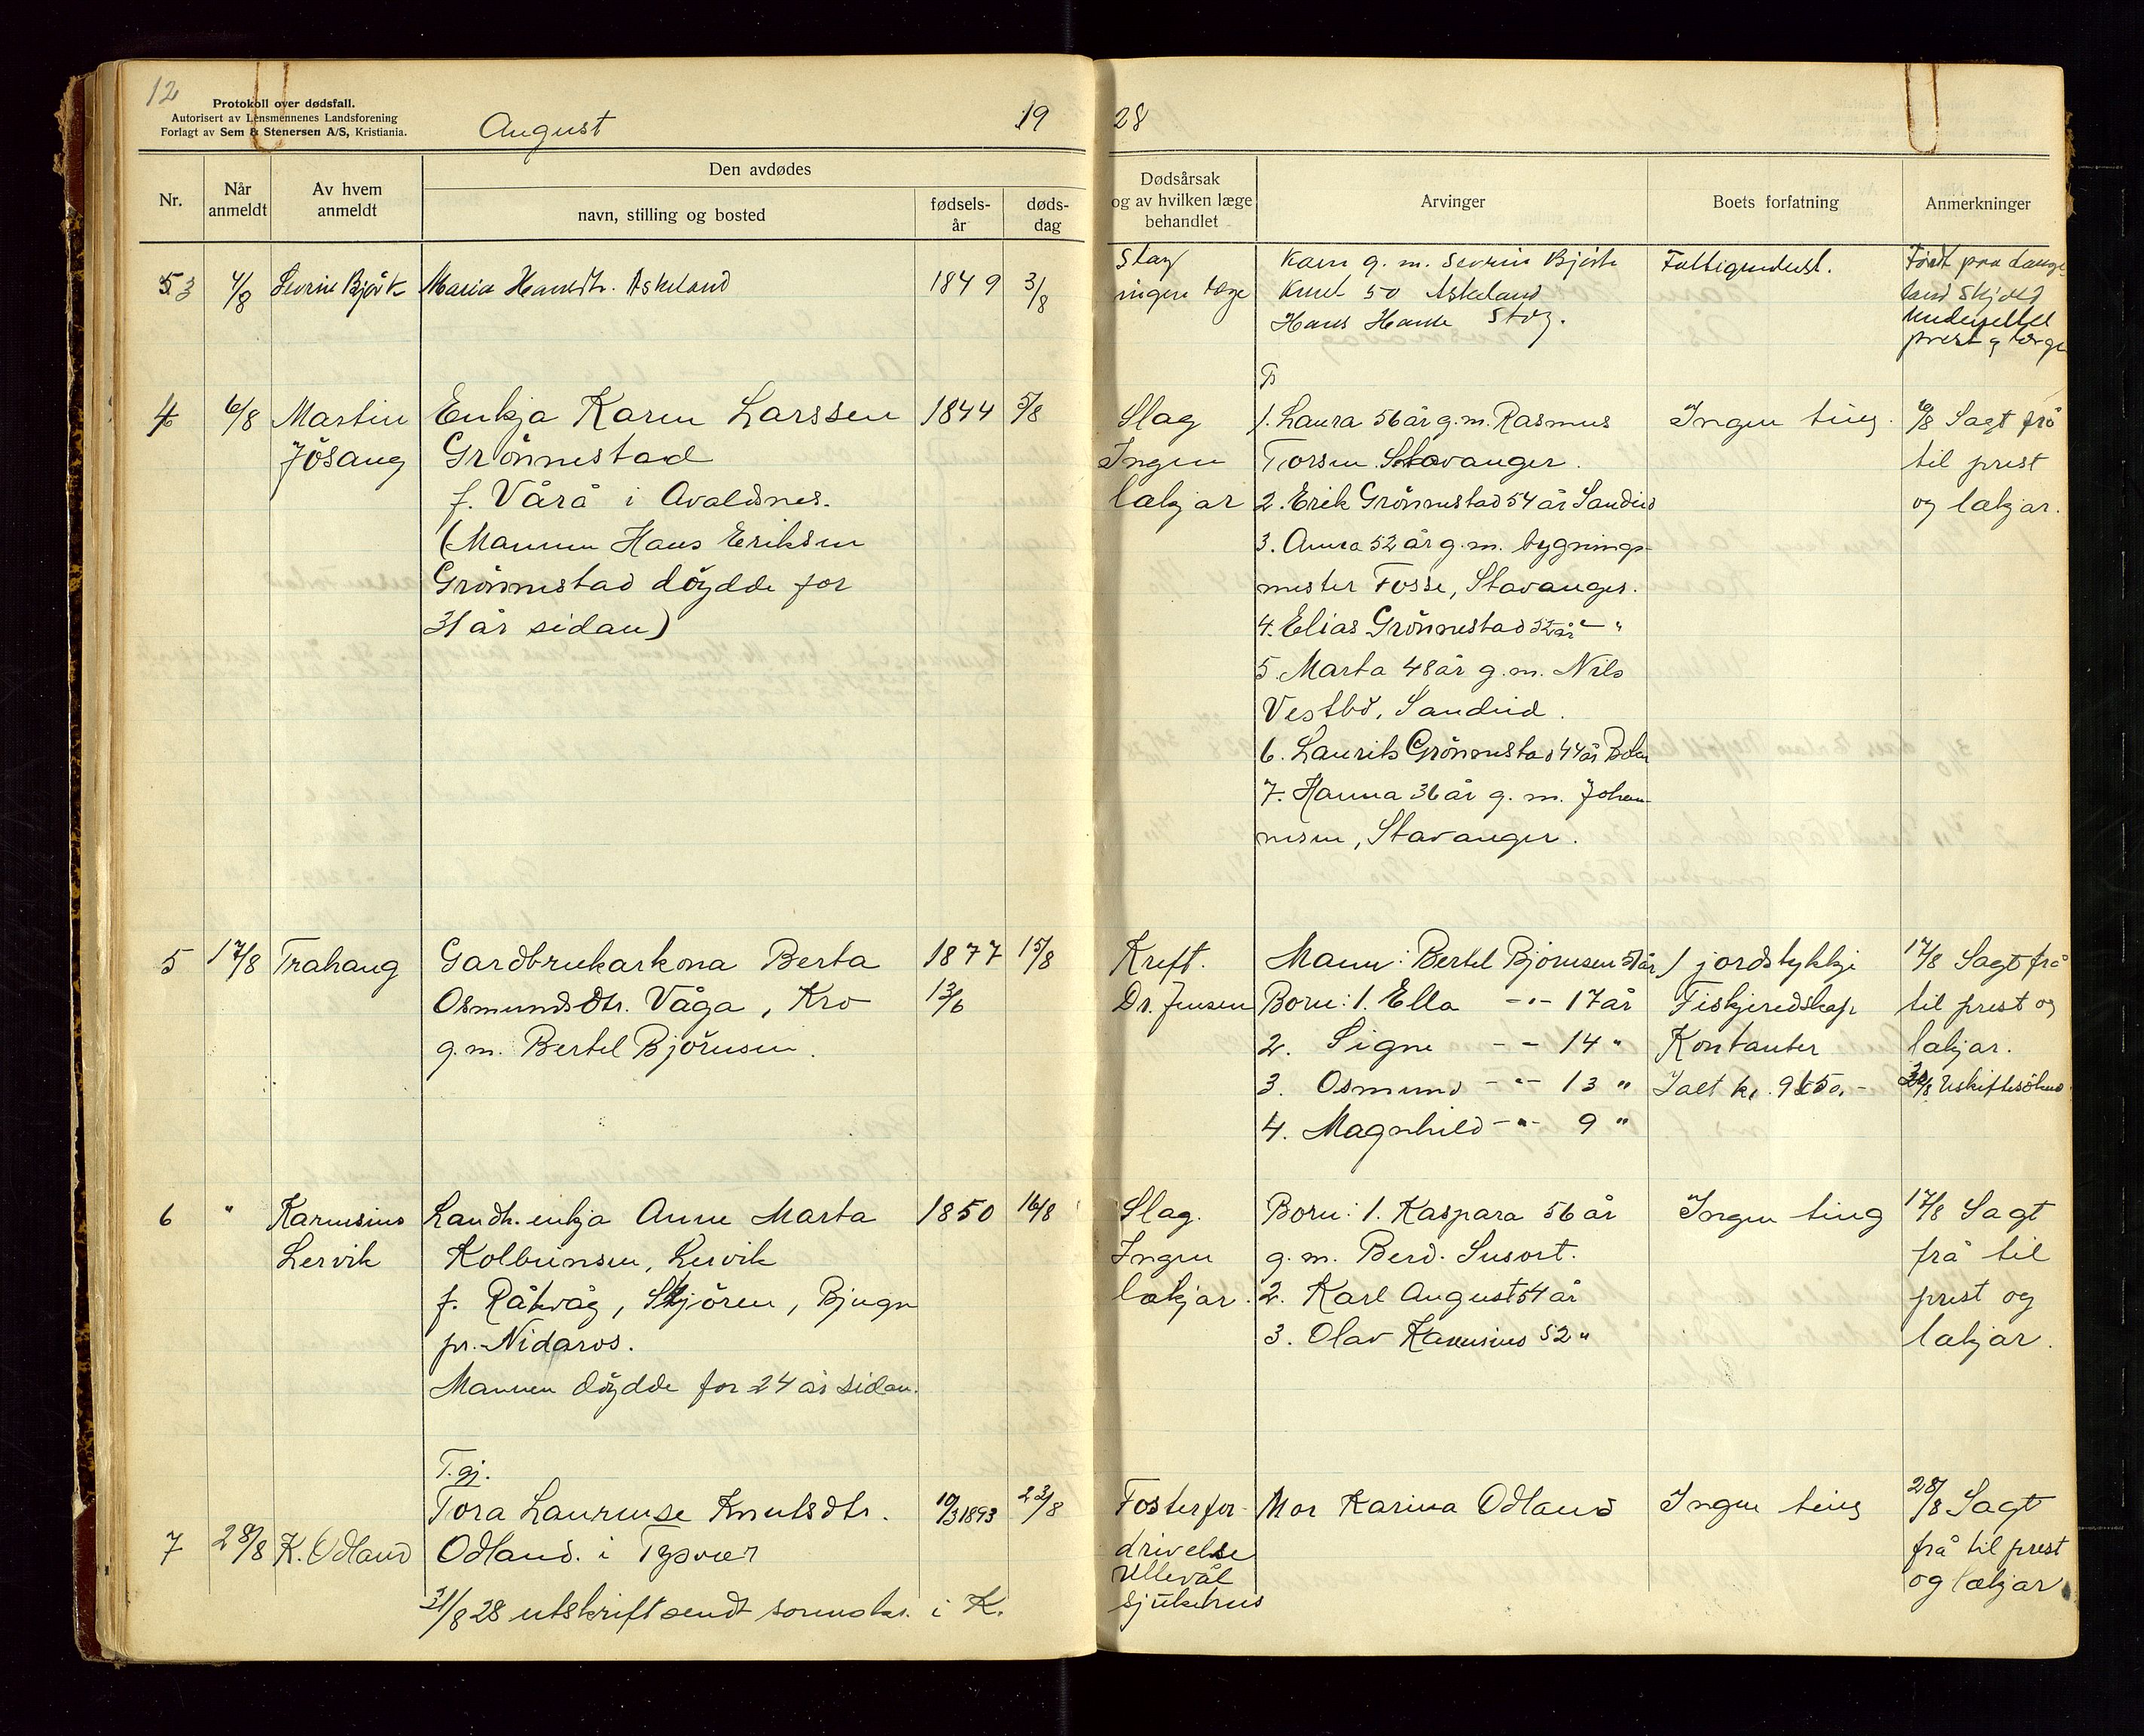 12
Protokoll over dødsfall.
Autorisert av Lensmennenes Landsforening
Forlagt av Sem & Stenersen A/S, Kristiania.
August
19
28
Nr.
Når anmeldt
Av hvem anmeldt
Den avdødes
navn, stilling og bosted
fødsels-år
døds-dag
Dødsårsak og av hvilken læge behandlet
Arvinger
Boets forfatning
Anmerkninger
3
4/8
Sevrin
Maria Askeland
1849
3/8
Slag
ingen læge
Karn g. m. Sevrin
Knut 50 Askeland
Hans
Fattigunderst.
Født paa
Skjold
prest og læge
4
6/8
Martin
Jösang
Enkja Karen Larssen
Grönnestad
f. Vårå i Avaldsnes.
(Mannen Hans Eriksen
Grönnestad döydde for
31 år sidan)
1844
5/8
Slag
Ingen
lækjar
1. Laura 56 år g. m. Rasmus
Torsen Stavanger.
2. Erik Grönnestad 54 år Sandeid
3. Anna 52 år g. m. bygnings-
mester Fosse, Stavanger.
4. Elias Grönnestad 52 år - "
5. Marta 48 år g. m. Nils
Vestbö, Sandeid.
6. Laurits Grönnestad 44 år
7. Hanna 36 år g. m. Johan-
nesen, Stavanger.
Ingen ting.
6/8 Sagt frå
til prest
og lækjar.
5
17/8
Trahaug
Gardbrukarkona Berta
Osmundsdtr. Våga, Kro
g. m. Bertel Björnsen.
1877
13/6
15/8
Kreft.
Dr. Jensen
Mann: Bertel Björnsen 51 år
Born: 1. Ella -"- 17 år
2. Signe - - 14 "
3. Osmund -"- 13 "
4. Magnhild -"- 9 "
1 jordstykkje
Fiskjeredskap
Kontanter
Ialt kr. 9150.-
17/8 Sagt frå
til prest og
lækjar.
6
"
Karmsins
Lervik
Landh. enkja Anne Marta
Kolbeinsen, Lervik
f. Råkvåg, Skjören, Bjugn
pr. Nidaros.
Mannen döydde for 24 år sidan.
1850
16/8
Slag.
Ingen
lækjar.
Born: 1. Kaspara 56 år
g. m. Berd. Susort.
2. Karl August 54 år
3. Olav Karmsins 52 "
Ingen ting
17/8 Sagt
frå til
prest og
lækjar.
T. gj.
7
28/8
K. Odland
Tora Laurense Knutsdtr.
Odland. i Tysvær
10/3 1893
23/8
Fosterfor-
drivelse
Ullevål
sjukehus
Mor Karina Odland
Ingen ting
28/8 Sagt
frå til prest
og lækjar
31/8 28 utskrift sendt sorenskr. i K.